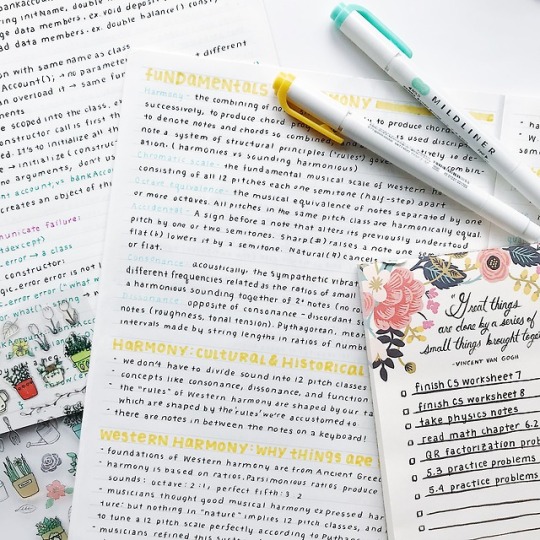 bankaccount.
ring initName, double
ge data members. ex. void deposit
ad data members. ex. double balance() const
on with same name as class
Account(); → no parameter
an overload it → same fun
different
ments
e scoped into the class, ex
constructor call is first th
ed. It's to initialize all th
e → initialize (construct
he arguments, don't us
nt account; vs bankAcco
creates an object of th
municate failure:
tdexcept>
_error → 8 class
constructor:
gic_error error ("what w
for what() string
fundamentals
harmony
Harmony - the combining of no
successively, to produce chord
to produce chords
to denote notes and chords so combined,
is used
note a system of structural principles ("rules")
ation. (harmonies vs sounding harmonious)
Chromatic scale - the fundamental musical scale of Western
consisting of all 12 pitches each one semitone (half-step) apart
Octave equivalence - the musical equivalence of notes separated by one
or more octaves. All pitches in the same pitch class are harmonically equal
Accidental - A sign before a note that alters its previously understood
pitch by one or two semitones. Sharp (#) raises a note one
flat (b) lowers it by a semitone. Natural (♮) cancels
or flat.
Consonance - acoustically, the sympathetic vibrat
different frequencies related as the ratios of small
a harmonious sounding together of 2+ notes (no ro
Dissonance - opposite of consonance - discordant so
notes (roughness, tonal tension). Pythagorean, mean
intervals made by string lengths in ratios of number
Harmony: Cultural & Historical
- we don't have to divide sound into 12 pitch classes
concepts like consonance, dissonance, and function
- the "rules" of Western harmony are shaped by our ta
which are shaped by the 'rules' we're accustomed to
- there are notes in between the notes on a keyboard!
Western Harmony: Why things are
- foundations of Western harmony are from Ancient Greec
- harmony is based on ratios. Parsimonious ratios produce
sounds: octave: 2:1, perfect fifth: 3:2
- musicians thought good musical harmony expressed har
ture: but nothing in "nature" implies 12 pitch classes, and
to tune a 12 pitch scale perfectly according to Pythag
- musicians refined this
MILDLINER
"Great things
are done by a series of
small things brought toge
-VINCENT VAN GOGH
finish CS worksheet 7
finish CS worksheet 8
take physics notes
read math chapter 6.2
QR factorization prob
5.3 practice problems
5.4 practice problems